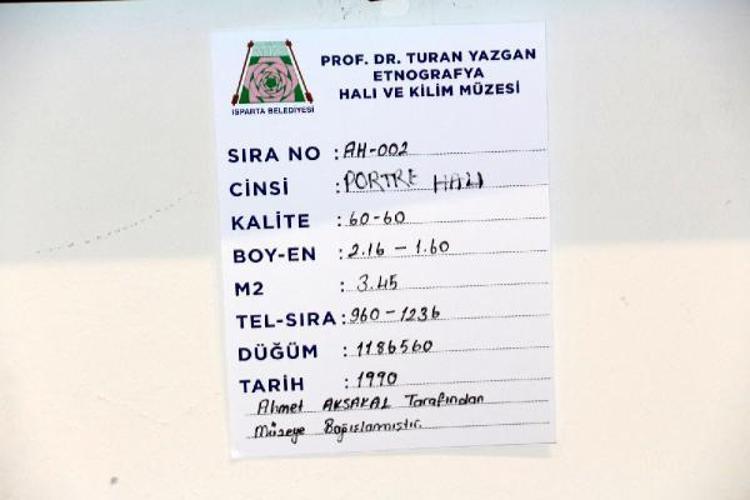 PROF. DR. TURAN YAZGAN
ETNOGRAFYA
HALI VE KİLİM MÜZESİ
ISPARTA BELEDİYESİ
SIRA NO : AH-002
CİNSİ : PORTRE HALI
KALİTE : 60-60
BOY-EN : 2.16 - 1.60
M2 : 3.45
TEL-SIRA : 960-1236
DÜĞÜM : 1186560
TARİH : 1990
Ahmet AKSAKAL Tarafından
Müzeye Bağışlamıştır.